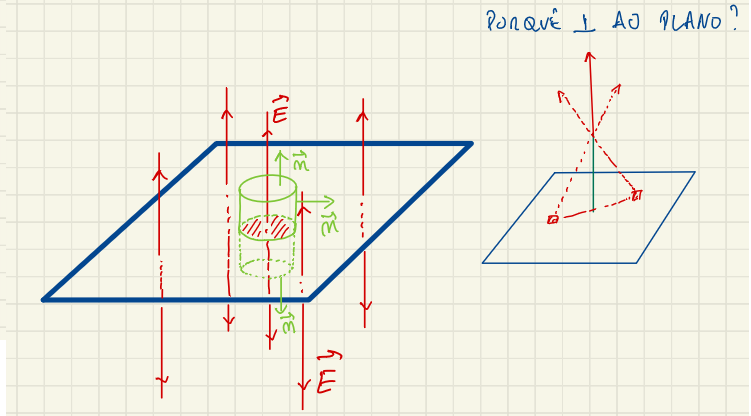 PORQUÊ ⊥ AO PLANO?
E⃗
n⃗
n⃗
n⃗
E⃗